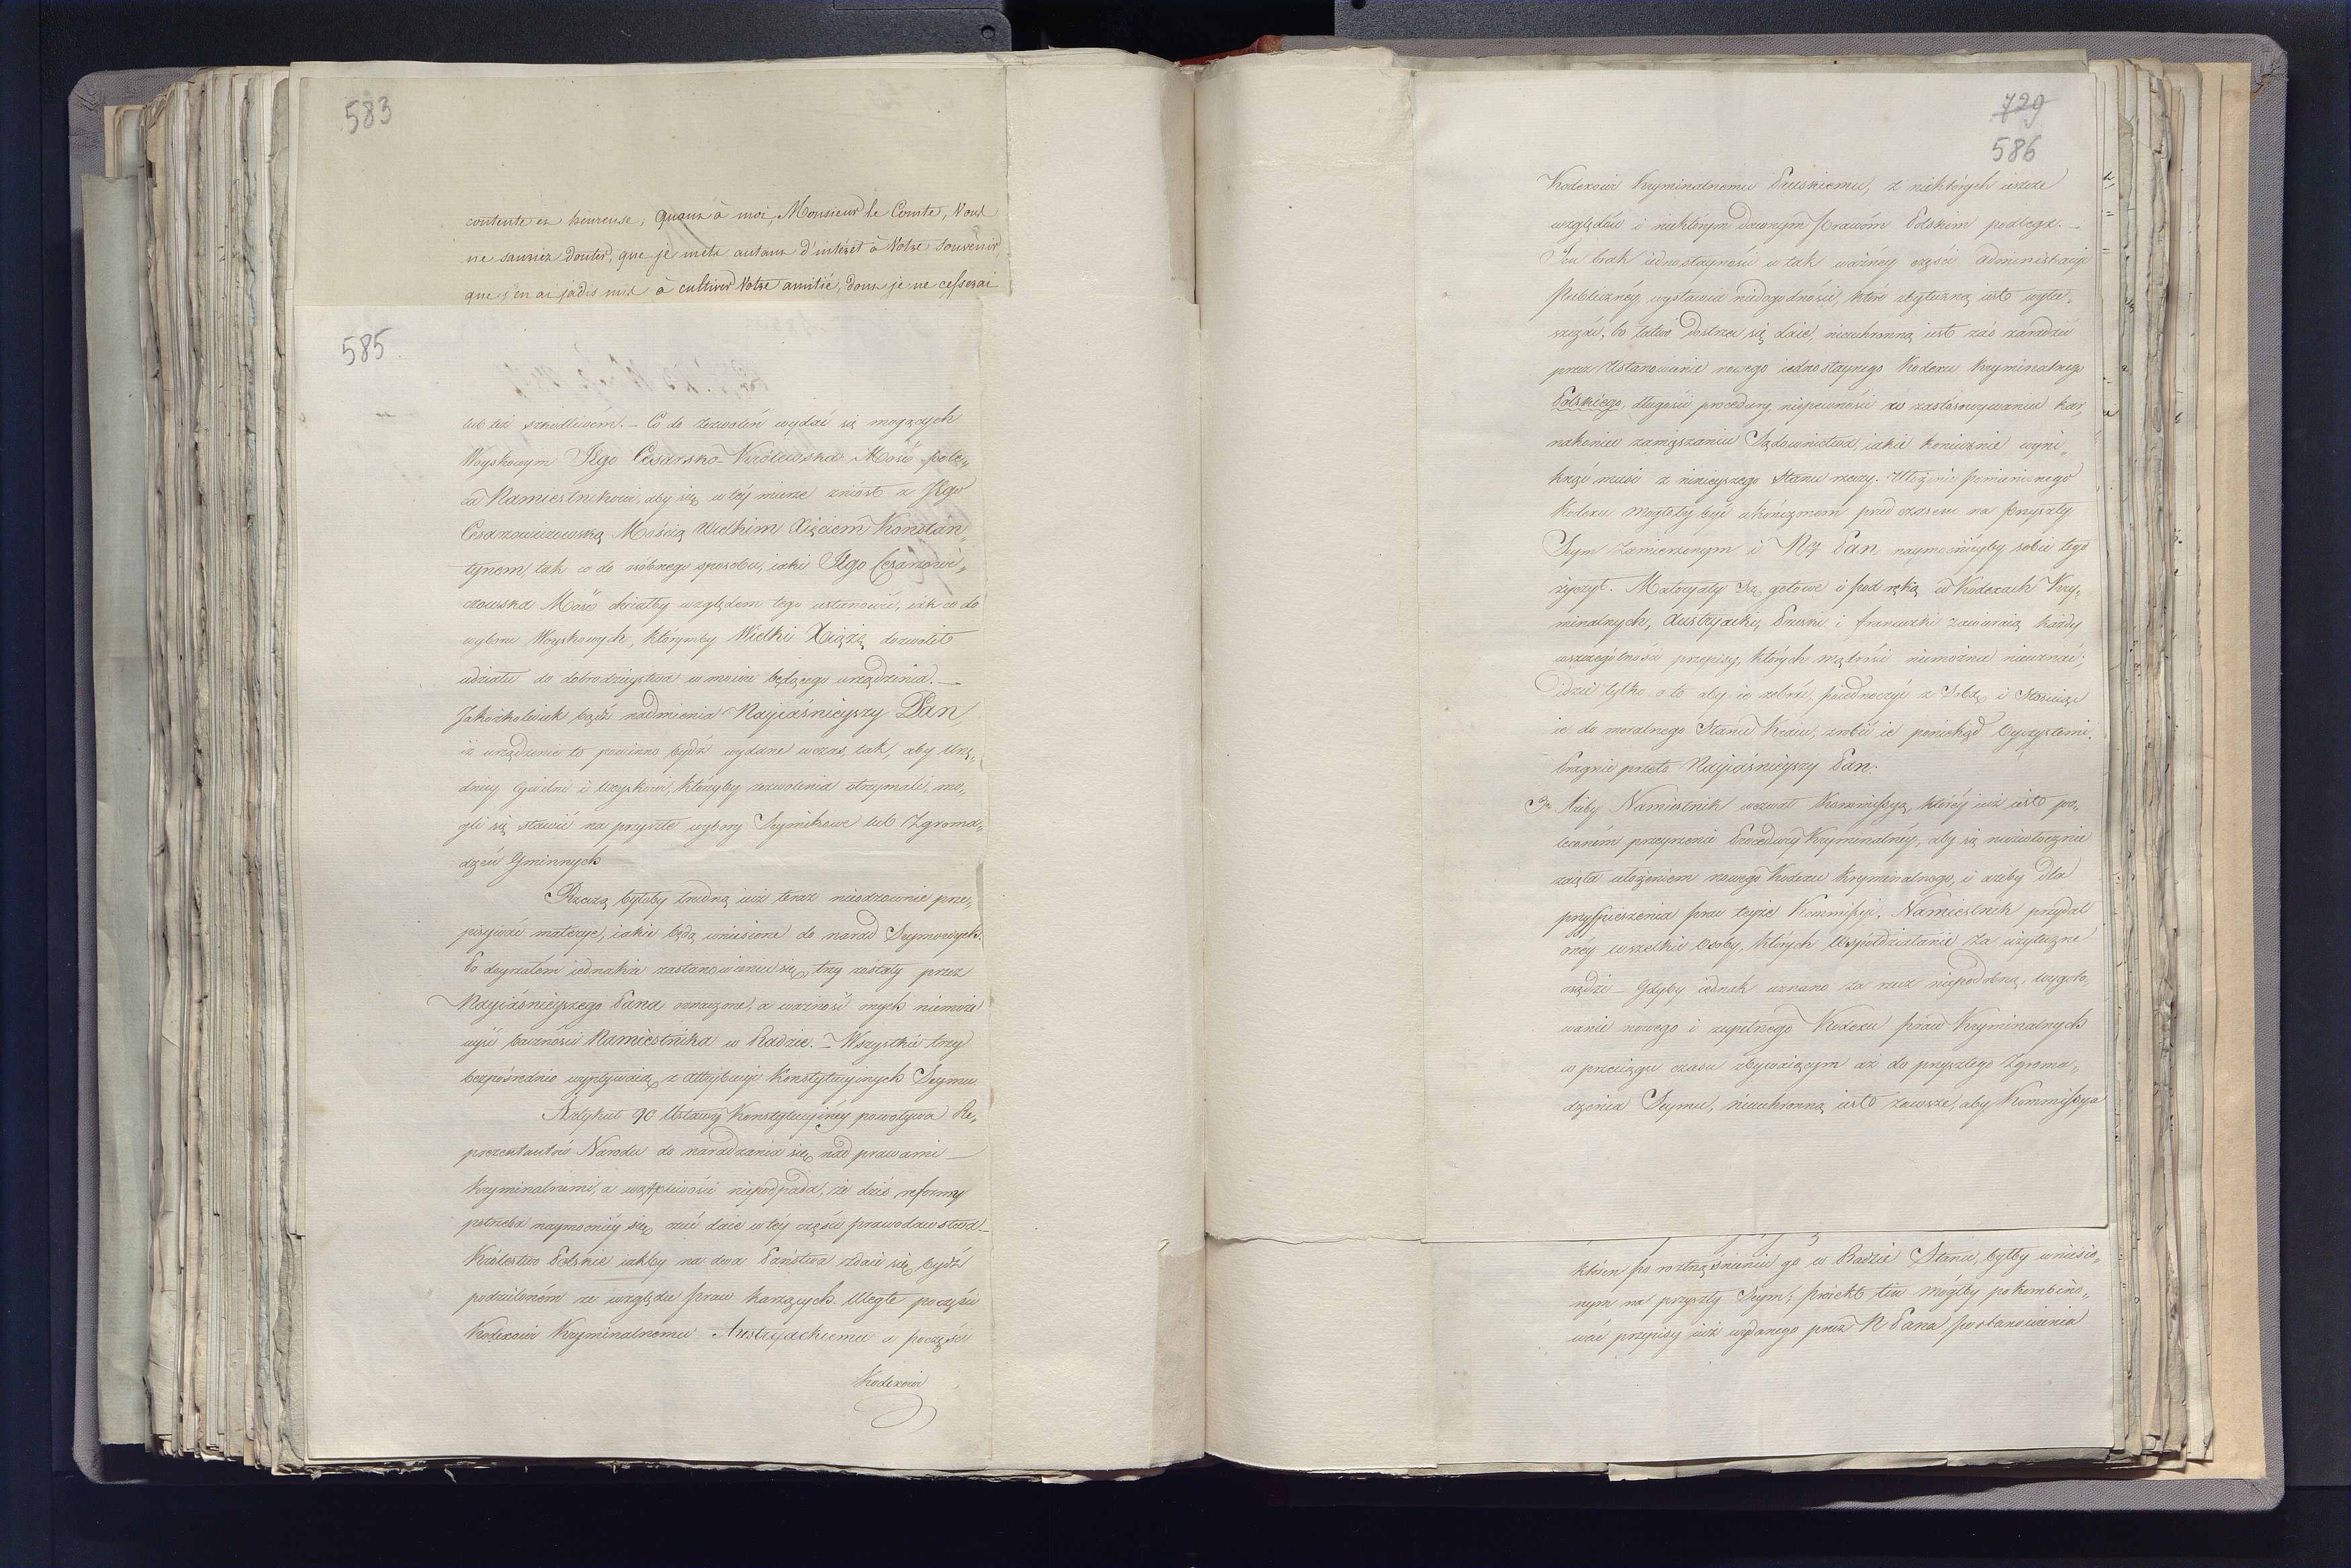 583
contente et heureuse, quant à moi, Monsieur le Comte, Vous
ne sauriez douter, que je mets autant d'intérêt à Votre Souvenir,
que j'en ai jadis mis à cultiver Votre amitié, dont je ne cesserai
585
lub też szkodliwém. – Co do zezwoleń wydać się mogących
Woyskowym Jego Cesarsko-Królewska Mość pole„
ca Namiestnikowi, aby się w téy mierze zniósł z Jego
Cesarzewiczowską Mością Wielkim Xięciem Konstan„
tynem, tak co do osóbnego sposobu, iaki Jego Cesarzewi„
czowska Mość chciałby względem tego ustanowić, iak co do
wyboru Woyskowych, którymby Wielki Xiąże dozwolił
udziału do dobrodzieystwa w mowie będącego urządzenia. —
Jakożkolwiek bądź nadmienia Nayiaśnieyszy Pan,
iż urządzenie to powinno bydź wydane wczas, tak, aby Urzę„
dnicy Cywilni i Woyskowi, którzyby zezwolenia otrzymali, mo„
gli się stawić na przyszłe wybory Seymikowe lub Zgroma„
dzeń Gminnych
Rzeczą byłoby trudną iuż teraz nieodzownie prze„
pisywać materye, iakie będą wniesione do narad Seymowych.
Po doyrzałem iednakże zastanowieniu się, trzy zostały przez
Nayiaśnieyszego Pana oznaczone, a ważność onych niemoże
uyść baczności Namiestnika w Radzie. – Wszystkie trzy
bezpośrednio wypływaią z attrybucyi Konstytucyinych Seymu
Artykuł 90 Ustawy Konstytucyinéy powoływa Re„
prezentantów Narodu do naradzania się nad prawami —
Kryminalnemi, a wątpliwości niepodpada, że dziś reformy
potrzeba naymocniéy się czuć daie w téy części prawodawstwa. –
Królestwo Polskie iakby na dwa Państwa zdaie się bydź
podzieloném ze względu praw karzących. Uległe poczęści
Kodexowi Kryminalnemu Austryackiemu a poczęści
Kodexowi
729
586
Kodexowi Kryminalnemu Pruskiemu, z niektórych ieszcze
względów i niektórym dawnym prawóm Polskim podlega. —
Ten brak iednostayności w tak ważnéy części administracyi
Publicznéy, wystawia niedogodności, które zbyteczną iest wyłu„
szczać, bo łatwo dostrzec się daie, nieuchronną iest zaś zaradzić
przez Ustanowienie nowego iednostaynego Kodexu Kryminalnego
Polskiego, długości procedury, niepewności w zastosowywaniu kar,
nakoniec zamięszaniu Sądownictwa, iakie koniecznie wyni„
knąć musi z ninieyszego Stanu rzeczy. Ułożenie pomienionego
Kodexu mogłoby być ukończonem przed czasem na przyszły
Seym zamierzonym i Ny Pan naymocniéyby sobie tego
życzył. Materyały są gotowe i pod ręką w Kodexach Kry„
minalnych, Austryacki, Pruski i francuzki zawieraią każdy
wszczególności przepisy, których mądrości niemożna nieuznać;
idzie tylko o to aby ie zebrać, poiednoczyć z Sobą i Stosuiąc
ie do moralnego Stanu Kraiu, zrobić ie poniekąd Oyczystemi.
Pragnie przeto Nayiaśnieyszy Pan:
Ażeby Namiestnik wezwał Kommissyą, któréy iuż iest po„
leconém przeyrzenie Procedury Kryminalnéy, aby się niezwłocznie
zaięła ułożeniem nowego Kodexu Kryminalnego, i ażeby dla
przyspieszenia prac teyże Kommissyi, Namiestnik przydał
onéy wszelkie osoby, których Współdziałanie za użyteczne
osądzi – Gdyby iednak uznano za rzecz niepodobną, wygoto„
wanie nowego i zupełnego Kodexu praw Kryminalnych
w przeciągu czasu zbywaiącym aż do przyszłego Zgroma„
dzenia Seymu, nieuchronną iest zawsze, aby Kommissya
któren po roztrząśnieniu go w Radzie Stanu, byłby wniesio„
nym na przyszły Seym; proiekt ten mógłby pokombino„
wać przepisy iuż wydanego przez N Pana postanowienia